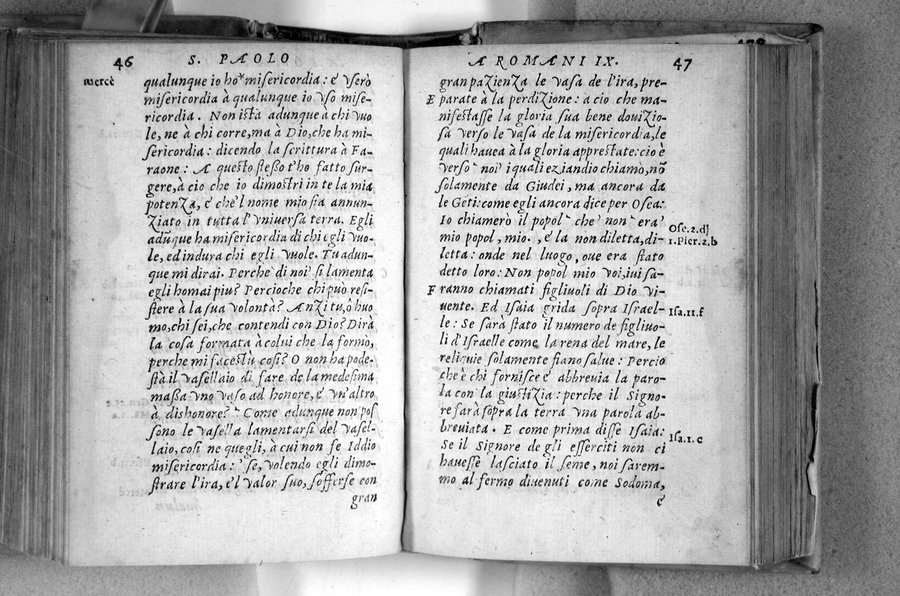 46
S. PAOLO
mercè
qualunque io ho* misericordia: e vserò
misericordia à qualunque io vso mise-
ricordia. Non istà adunque à chi vuo
le, ne à chi corre, ma à Dio, che ha mi-
sericordia: dicendo la scrittura à Fa-
raone: A questo stesso t'ho fatto sur-
gere, à cio che io dimostri in te la mia
potenza, e che'l nome mio sia annun-
ziato in tutta l'vniuersa terra. Egli
adunque ha misericordia di chi egli vuo-
le, ed indura chi egli vuole. Tu adun-
que mi dirai. Perche di noi si lamenta
egli homai piu? Percioche chi può resi-
stere à la sua volontà? Anzi tu, ò huo
mo, chi sei, che contendi con Dio? Dirà
la cosa formata à colui che la formò,
perche mi facestù così? O non ha pode-
stà il vasellaio di fare de la medesima
massa vno vaso ad honore, e vn'altro
à dishonore? Come adunque non pos
sono le vasella lamentarsi del vasel-
laio, così ne quegli, à cui non fe Iddio
misericordia: se, volendo egli dimo-
strare l'ira, e'l valor suo, sofferse con
gran
A ROMANI IX.
47
gran pazienza le vasa de l'ira, pre-
E parate à la perdizione: à cio che ma-
nifestasse la gloria sua bene douizio-
sa verso le vasa de la misericordia, le
quali hauea à la gloria apprestate: cio è
verso noi i quali eziandio chiamò, nõ
solamente da Giudei, ma ancora da
le Gẽti: come egli ancora dice per Osea:
Io chiamerò il popol che non era
mio popol, mio, e la non diletta, di-
letta: onde nel luogo, oue era stato
detto loro: Non popol mio voi, iui sa-
F ranno chiamati figliuoli di Dio vi-
uente. Ed Isaia grida sopra Israel-
le: Se sarà stato il numero de figliuo-
li d'Israelle come la rena del mare, le
reliquie solamente fiano salue: Percio
che è chi fornisce e abbreuia la paro-
la con la giustizia: perche il Signo-
re farà sopra la terra vna parola ab-
breuiata. E come prima disse Isaia:
Se il Signore de gli esserciti non ci
hauesse lasciato il seme, noi sarem-
mo al fermo diuenuti come Sodoma,
e
Ose.2.d]
1.Pier.2.b
Isa.11.f
Isa.1.c